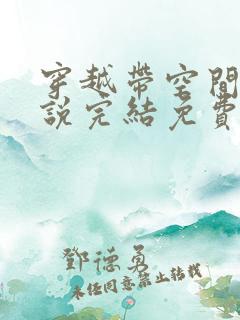 穿越帶空間
說完結免費
鄧德勇
未經同意禁止轉載